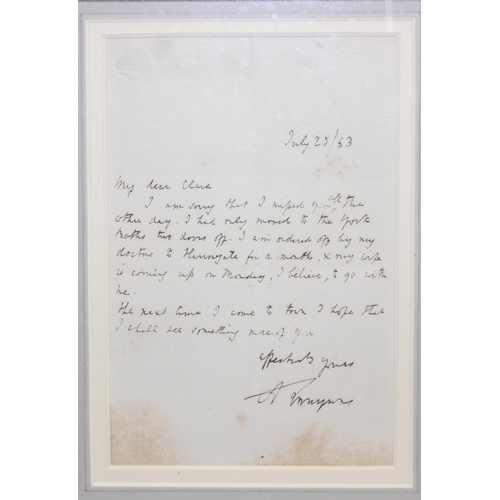 July 28/63
My dear Clara
I am sorry that I missed you all the
other day. I had only moved to the York
Baths two doors off. I am ordered off by my
doctors to Harrogate for a month, & my wife
is coming up on Monday, I believe, to go with
me.
The next time I come to town I hope that
I shall see something more of you
affectionately yours
A Tennyson